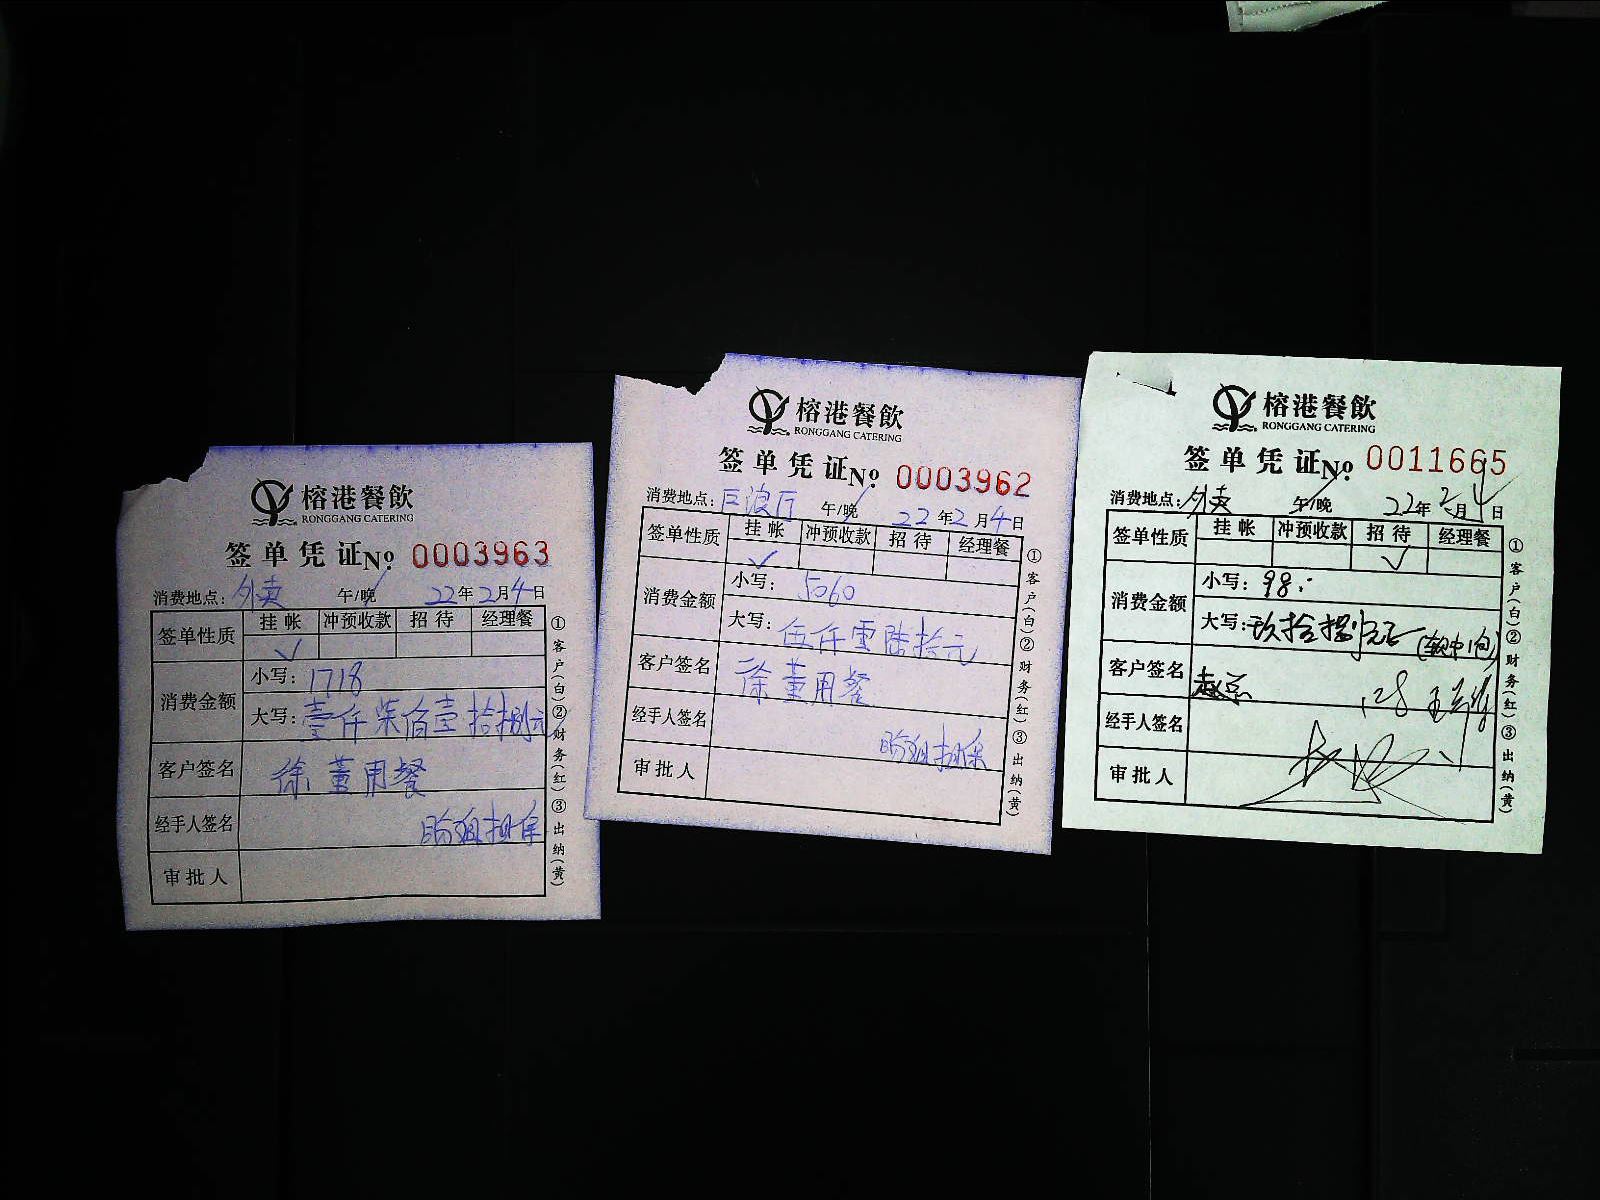 榕港餐飲
RONGGANG CATERING
签单凭证 № 0003963
消费地点：外卖 午/晚 22年2月4日
签单性质 挂帐 冲预收款 招待 经理餐
✓
消费金额 小写：1718
大写：壹仟柒佰壹拾捌元
客户签名 徐董用餐
经手人签名 担保
审批人
①客户(白)②财务(红)③出纳(黄)
榕港餐飲
RONGGANG CATERING
签单凭证 № 0003962
消费地点：巨浪厅 午/晚 22年2月4日
签单性质 挂帐 冲预收款 招待 经理餐
✓
消费金额 小写：5060
大写：伍仟零陆拾元
客户签名 徐董用餐
经手人签名 担保
审批人
①客户(白)②财务(红)③出纳(黄)
榕港餐飲
RONGGANG CATERING
签单凭证 № 0011665
消费地点：外卖 午/晚 22年2月4日
签单性质 挂帐 冲预收款 招待 经理餐
✓
消费金额 小写：98.
大写：玖拾捌元 (软中1包)
客户签名 赵总
经手人签名
审批人
①客户(白)②财务(红)③出纳(黄)